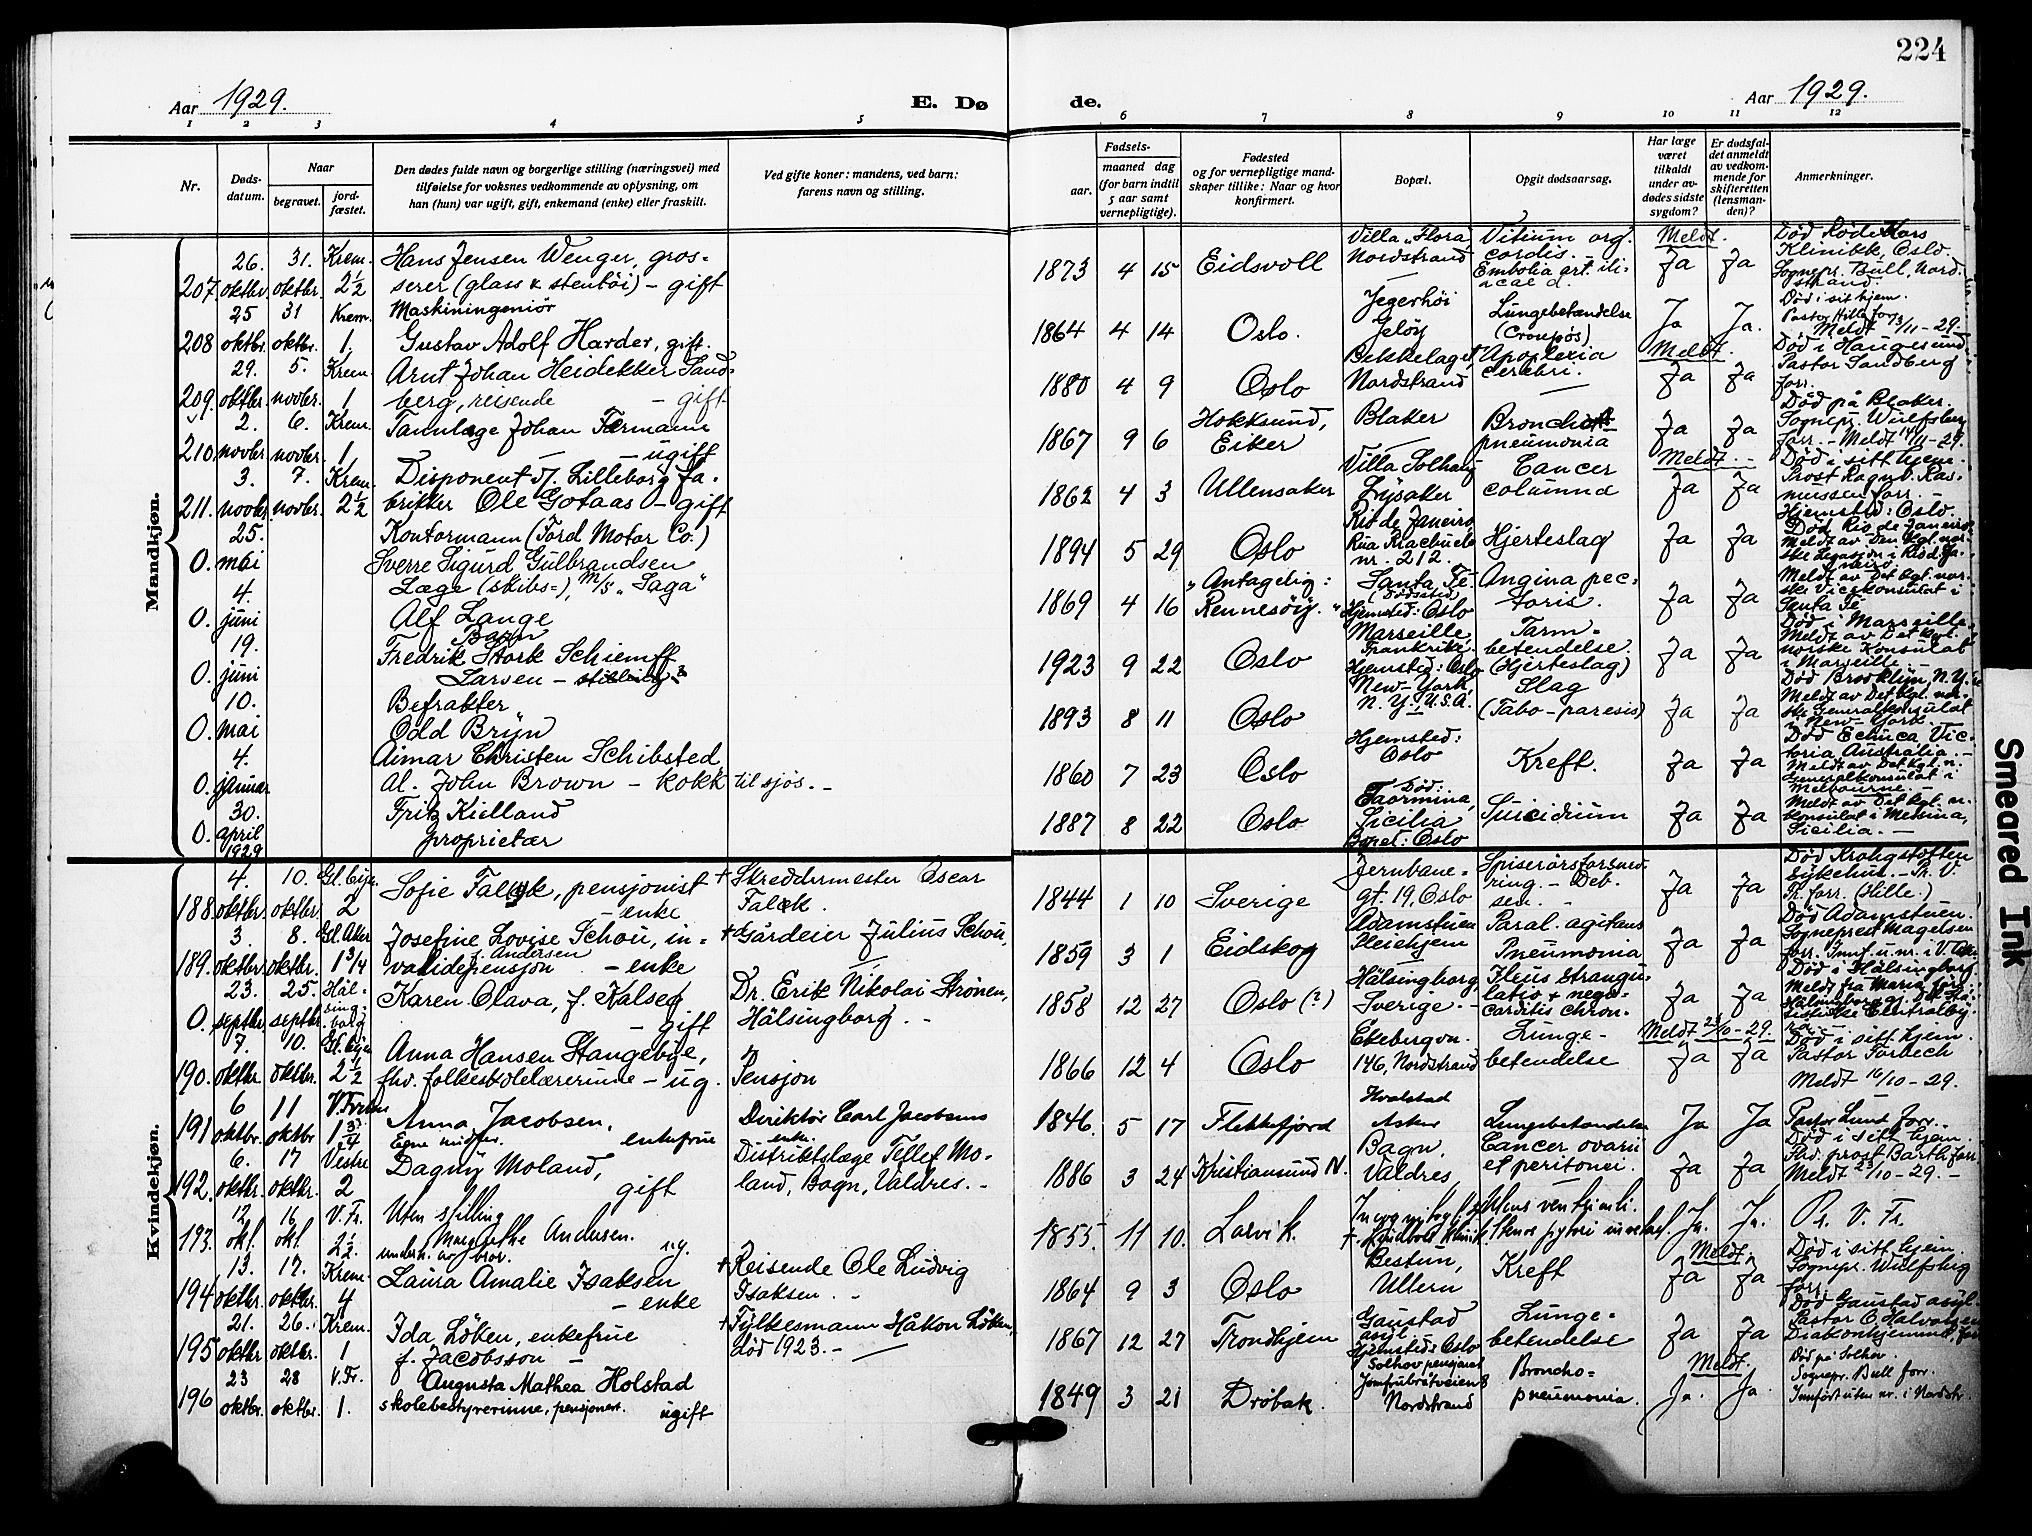 224
Aar 1929.
E. Dø de.
Aar 1929.
1 2 3 4 5 6 7 8 9 10 11 12
Nr.
Døds-datum.
Naar
begravet.
jord-fæstet.
Den dødes fulde navn og borgerlige stilling (næringsvei) med
tilføielse for voksnes vedkommende av oplysning, om
han (hun) var ugift, gift, enkemand (enke) eller fraskilt.
Ved gifte koner: mandens, ved barn:
farens navn og stilling.
Fødsels-
aar.
maaned dag
(for barn indtil
5 aar samt
vernepligtige).
Fødested
og for vernepligtige mand-
skaper tillike: Naar og hvor
konfirmert.
Bopæl.
Opgit dødsaarsag.
Har læge
været
tilkaldt
under av-
dødes sidste
sygdom?
Er dødsfal-
det anmeldt
av vedkom-
mende for
skifteretten
(lensman-
den)?
Anmerkninger.
Mandkjøn.
207. 26. oktbr. 31. oktbr. Krem. 2½
Hans Jensen Wenger, gros-
serer (glass & stentöi) - gift
1873 4 15 Eidsvoll
Villa "Flora" Nordstrand
Vitium org. cordis. - Embolia art. ili-
acae d.
Meldt. Ja Ja
Död Röde Kors
Klinikk, Oslo.
Sognepr. Bull, Nord-
strand.
208 25 oktbr. 31 oktbr. Krem. 1.
Maskiningeniør
Gustav Adolf Harder, gift.
1864 4 14 Oslo.
Jegerhöi Jelöy
Lungebetændelse (Croupøs)
Ja Ja.
Død i sit hjem.
Pastor Hille forr.
Meldt 13/11-29.
209. 29. oktbr. 5. novbr. Krem. 1
Arnt Johan Heidekker Sand-
berg, reisende - gift
1880 4 9 Oslo
Bekkelaget, Nordstrand
Apoplexia cerebri.
Meldt. Ja Ja
Död i Haugesund.
Pastor Sandberg
forr.
210. 2. novbr. 6. novbr. Krem. 1
Tannlæge Johan Fermann
- ugift
1867 9 6 Hokksund, Eiker
Blaker
Broncho-
pneumonia
Ja Ja
Död på Blaker.
Sognepr. Wulfsberg
forr. - Meldt 14/11-29.
211. 3. novbr. 7. novbr. Krem. 2½
Disponent v/. Lilleborg Fa-
brikker Ole Gotaas - gift
1862 4 3 Ullensaker
Villa Solhaug Lysaker
Cancer columna
Meldt. - Ja Ja
Död i sitt hjem.
Prost Ragnv. Ras-
mussen forr. -
0. 25. mai
Kontormann (Ford Motor Co.)
Sverre Sigurd Gulbrandsen
1894 5 29 Oslo
Rio de Janeiro, Rua
nr. 212.
Hjerteslag
Ja Ja
Hjemsted: Oslo.
Död Rio de Janeiro
Meldt av Den kgl. nor-
ske Legasjon i Rio d. Ja-
neiro
0. 4. juni
Læge (skibs-), M/S "Saga"
Alf Lange
1869 4 16 "Antagelig: Rennesöy."
Santa Fé (Dödssted) Hjemsted: Oslo
Angina pec-
toris.
Ja Ja
Meldt av Det kgl. nor-
ske Vicekonsulat i
Santa Fé
0. 19. juni
Barn
Fredrik Stork Schiemff
Larsen -
1923 9 22 Oslo
Marseille, Frankrike. Hjemsted: Oslo
Tarm-
betendelse. (Hjerteslag)
Ja Ja
Död i Marseille.
Meldt av Det kgl.
norske Konsulat
i Marseille. -
0. 10. mai
Befrakter
Odd Bryn
1893 8 11 Oslo
New-York, N.Y. U.S.A.
Slag
(Tabo-paresis)
Ja Ja
Död Brooklyn, N.Y.
Meldt av Det kgl. nor-
ske Generalkonsulat
i New-York.
0. 4. januar
Aimar Christen Schibsted
Al. John Brown - kokk til sjös. -
1860 7 23 Oslo
Hjemsted: Oslo
Kreft.
Ja Ja
Död Echuca, Vic-
toria, Australia. -
Meldt av Det kgl. n.
Generalkonsulat i
Melbourne. -
0. 30. april 1929
Fritz Kielland
proprietær
1887 8 22 Oslo
Död: Taormina, Sicilia
Oslo
Suicidium
Ja Ja
Meldt av Det kgl. n.
Konsulat i Messina,
Sicilia. -
Kvindekjøn.
188. 4. oktbr. 10. oktbr. 2
Sofie Falck, pensjonist
- enke
+ Skreddermester Oscar
Falck.
1844 1 10 Sverige
Jernbane-
gt. 19, Oslo
Spiserörsforsnev-
ring. -
Ja Ja
Död Krohgstötten
sykehus. - Pr. V.
Fr. forr. (Hille.)
189. 3. oktbr. 8. oktbr. Gl. Aker 1¾
Josefine Lovise Schou, in-
f. Andersen
validepensjon - enke
+ Gårdeier Julius Schou,
1859 3 1 Eidskog
Adamstuen Pleiehjem
Paral. agitans
Pneumonia
Ja Ja
Död Adamstuen.
Sogneprest Magelsen
forr.
0. 23. septbr. 25. septbr. Häl-
sing-
borg
Karen Olava, f. Kalseg
- gift
Dr. Erik Nikolai Strönen,
Hälsingborg. -
1858 12 27 Oslo (?)
Hälsingborg, Sverige -
Ileus strangu-
latio + myo-
carditis chron.
Ja Ja
Död i Hälsingborg.
Meldt fra Maria förs.
Hälsingborg
190. 7. oktbr. 10. oktbr. 2½
Anna Hansen Stangebye,
fhv. folkeskolelærerinne - ug.
Pensjon
1866 12 4 Oslo
Ekebergvn. 146, Nordstrand
Lunge-
betendelse
Meldt 23/10-29. Ja Ja
Död i sitt hjem.
Pastor Torbech
Meldt 16/10-29.
191 6 oktbr. 11 oktbr 1¾
Anna Jacobsen,
Egne midler. enkefrue
Direktör Carl Jacobsens
enke.
1846 5 17 Flekkefjord
Hvalstad Asker
Lungebetændelse
Ja Ja
Pastor Lund forr.
192. 6. oktbr. 17 oktbr. Vestre 2
Dagny Moland,
gift
Distriktslæge Tellef Mo-
land, Bagn, Valdres. -
1886 3 24 Kristiansund N.
Bagn, Valdres
Cancer ovarii
et peritonei.
Ja Ja
Död i sitt hjem.
prost Barth forr.
Meldt 23/10-29. -
193. 12 okt. 16 okt V. Fr. 2½.
Uten stilling
Margrethe Andersen.
underh. av bror. ug.
1855. 11 10. Larvik.
Ulcus ventriculi.
Ja. Ja.
Pr. V. Fr.
194 13. oktbr. 17. oktbr. Krem. 4
Laura Amalie Isaksen
- enke
+ Reisende Ole Ludvig
Isaksen. -
1864 9 3 Oslo
Bestum, Ullern
Kreft
Meldt. Ja Ja
Död i sitt hjem.
Sognepr. Wulfsberg
forr.
195 21. oktbr. 26. oktbr. Krem. 1
Ida Löken, enkefrue
f. Jacobsson -
+ Fylkesmann Håkon Löken,
död 1923. -
1867 12 27 Trondhjem
Gaustad asyl. Hjemsted: Oslo
Lunge-
betendelse
Ja Ja
Död Gaustad asyl.
Pastor O. Halvorsen
Diakonhjemmet, forr.
196 23 oktbr. 28 oktbr. V. Fr. 1.
Augusta Mathea Holstad
skolebestyrerinne, pensjonert. ugift
1849 3 21 Dröbak.
Solhov pensjonat Jomfrubråtveien 8 Nordstrand
Broncho-
pneumonia.
Meldt. Ja. Ja.
Død på Solhov.
Sognepr. Bull forr.
Innført uten nr. i Nordstr.
Smeared Ink